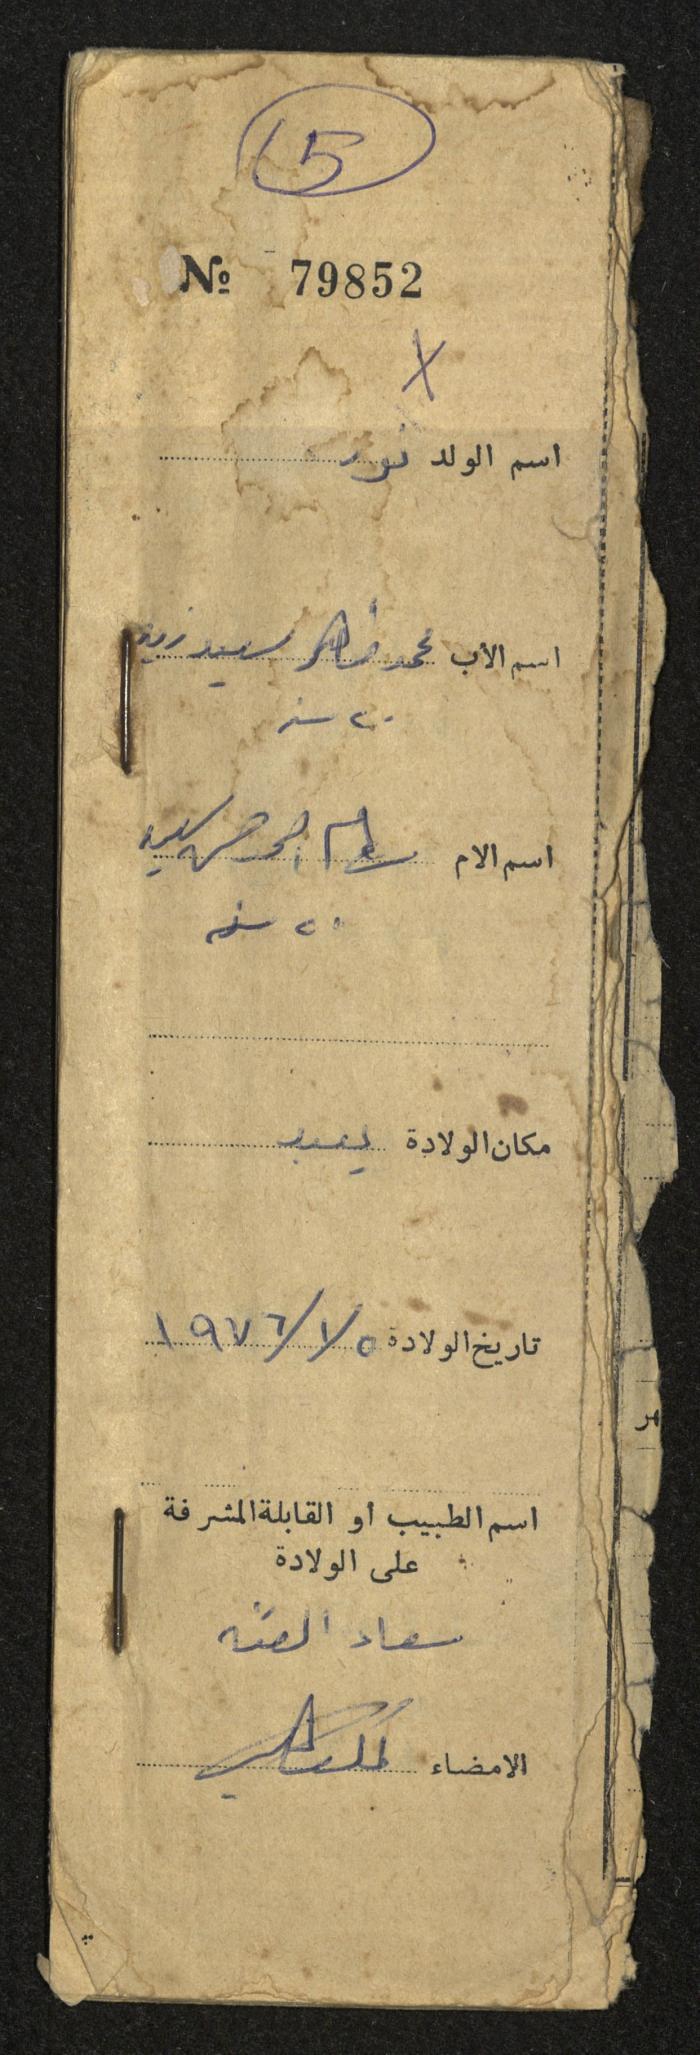 15
№ 79852
X
اسم الولد نور
اسم الأب محمد ظاهر سعيد زيد
٢٠ سنه
اسم الام
سنه
مكان الولادة يعبد
تاريخ الولادة ٥/١/١٩٧٦
اسم الطبيب او القابلة المشرفة
على الولادة
سعاد
الامضاء
هر